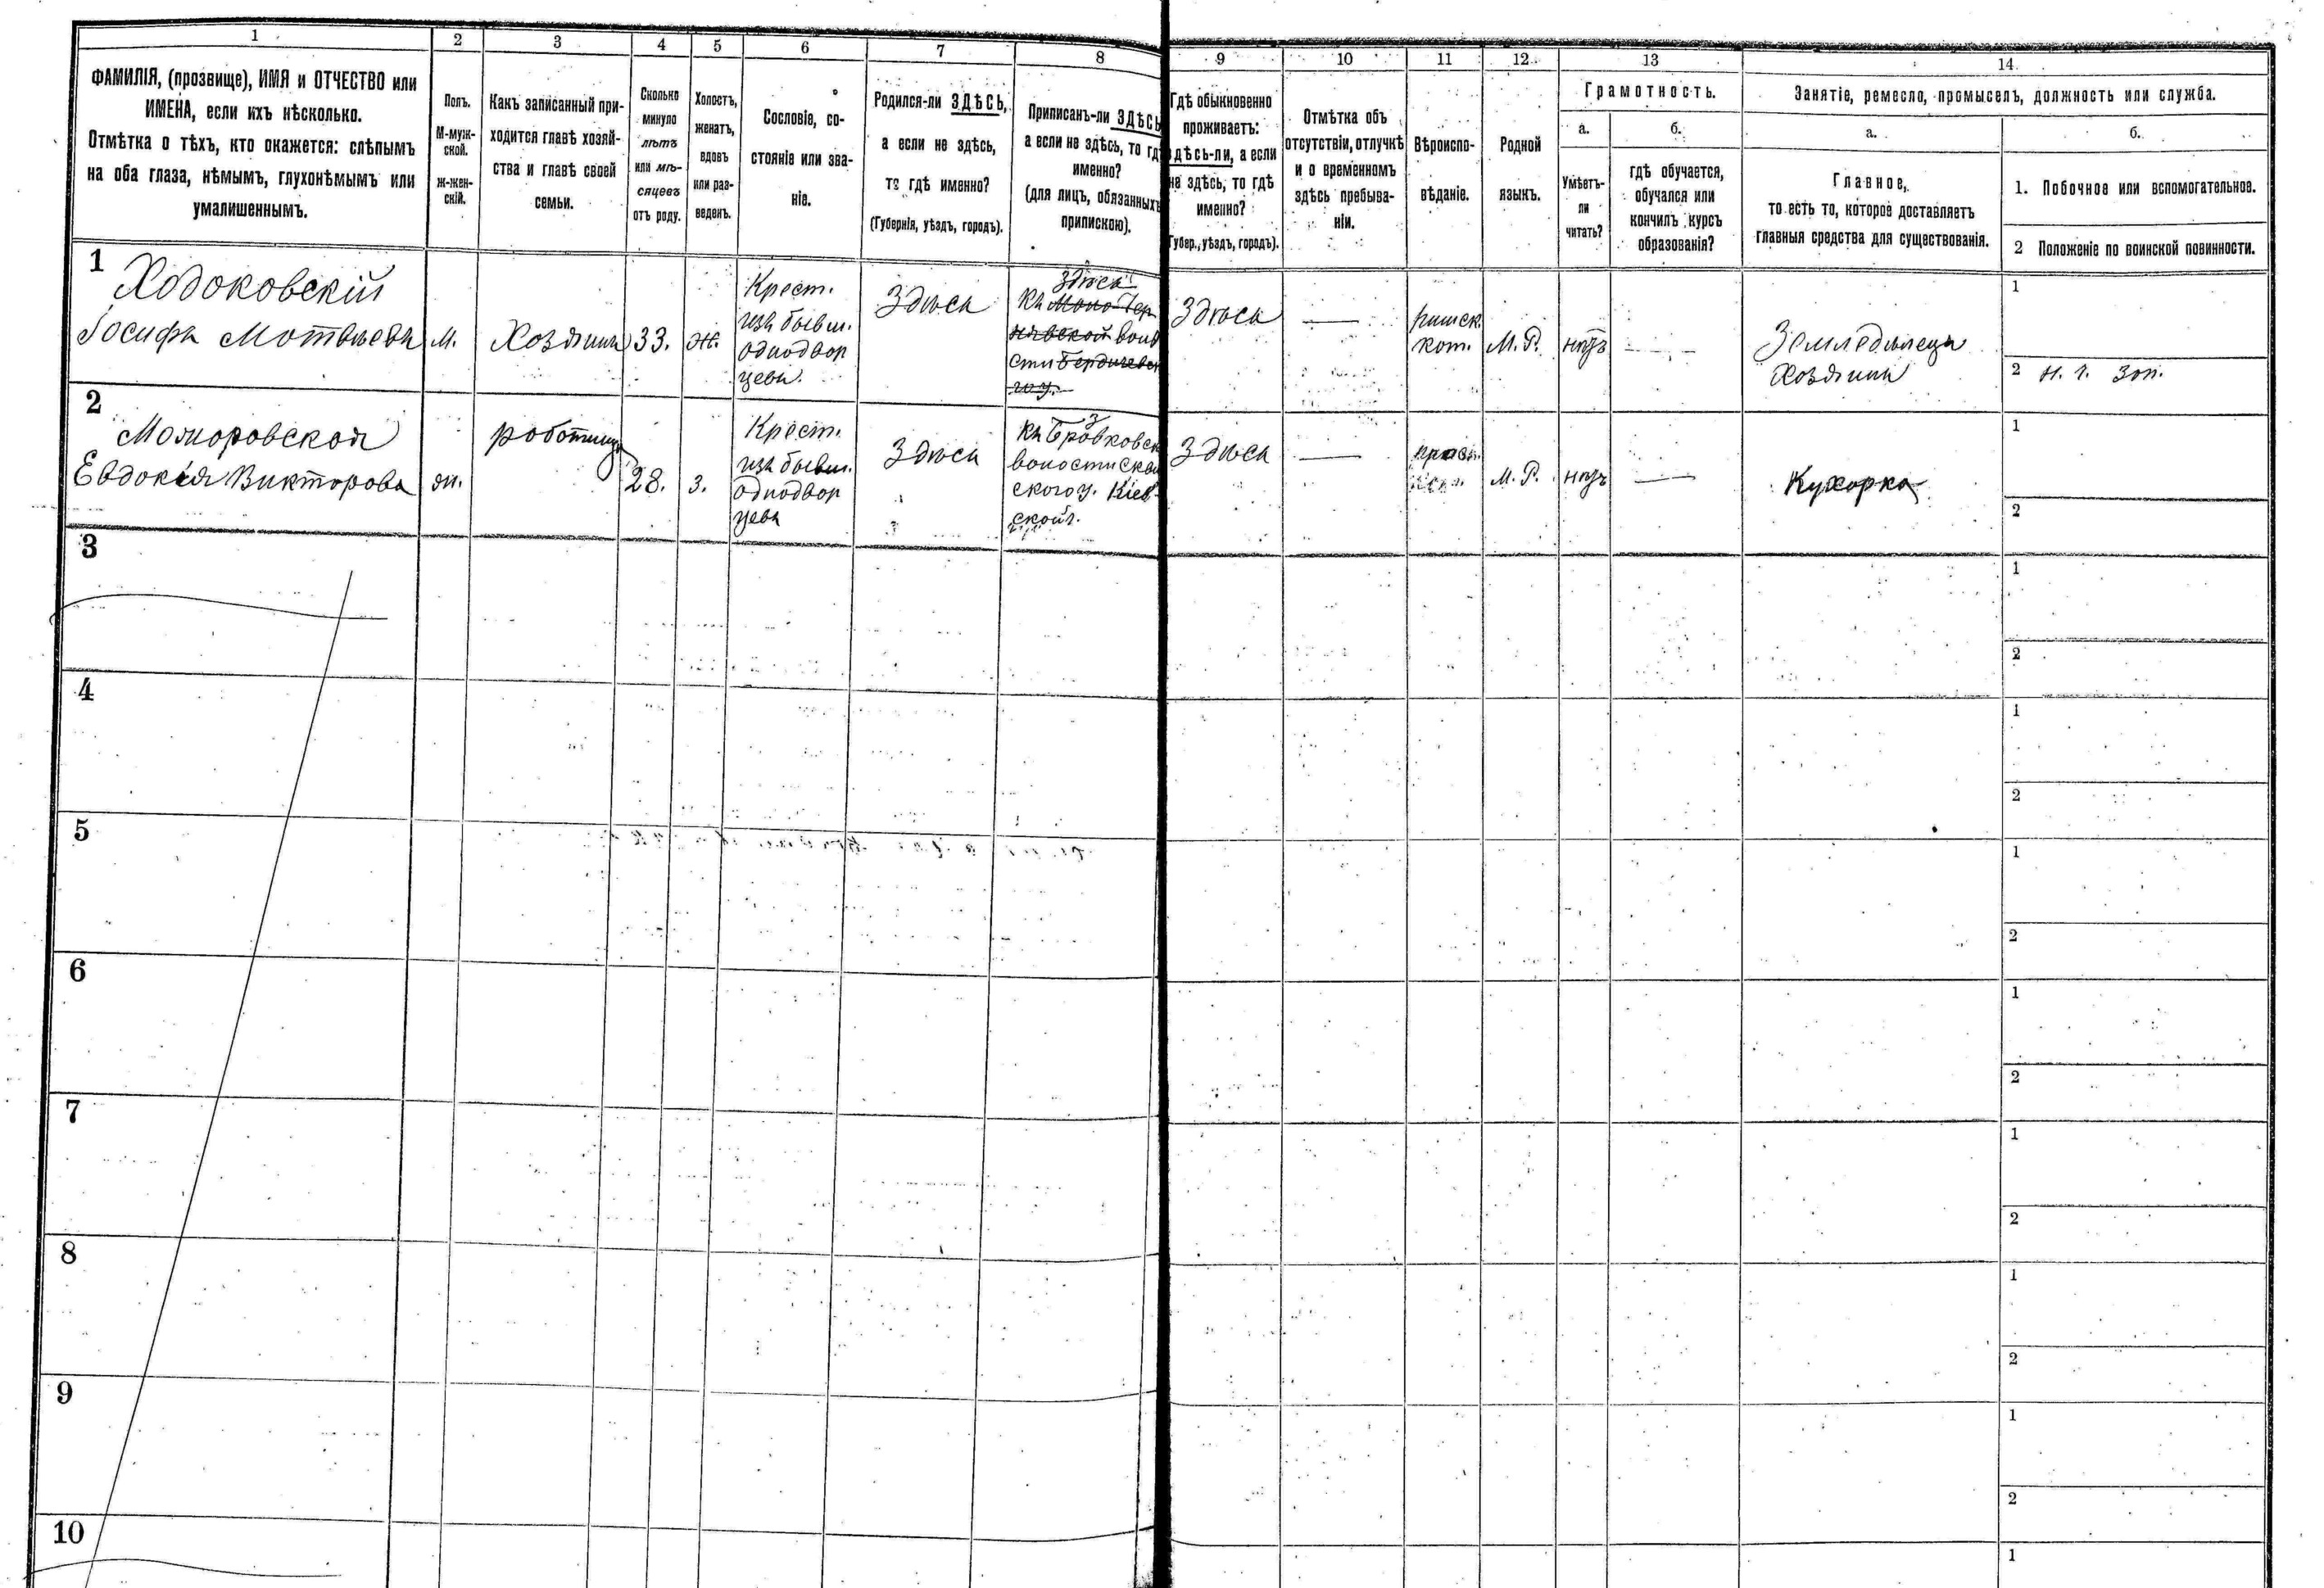 1 2 3 4 5 6 7 8 9 10 11 12 13 14
ФАМИЛІЯ, (прозвище), ИМЯ и ОТЧЕСТВО или
ИМЕНА, если ихъ нѣсколько.
Отмѣтка о тѣхъ, кто окажется: слѣпымъ
на оба глаза, нѣмымъ, глухонѣмымъ или
умалишеннымъ.
Полъ.
М-муж-
ской.
Ж-жен-
скій.
Какъ записанный при-
ходится главѣ хозяй-
ства и главѣ своей
семьи.
Сколько
минуло
лѣтъ
или мѣ-
сяцевъ
отъ роду.
Холостъ,
женатъ,
вдовъ
или раз-
веденъ.
Сословіе, со-
стояніе или зва-
ніе.
Родился-ли ЗДѢСЬ,
а если не здѣсь,
то гдѣ именно?
(Губернія, уѣздъ, городъ).
Приписанъ-ли ЗДѢСЬ
а если не здѣсь, то гдѣ
именно?
(для лицъ, обязанныхъ
припискою).
Гдѣ обыкновенно
проживаетъ:
здѣсь-ли, а если
не здѣсь, то гдѣ
именно?
Губер., уѣздъ, городъ).
Отмѣтка объ
отсутствіи, отлучкѣ
и о временномъ
здѣсь пребыва-
ніи.
Вѣроиспо-
вѣданіе.
Родной
языкъ.
Грамотность.
а.
Умѣетъ-
ли
читать?
б.
гдѣ обучается,
обучался или
кончилъ курсъ
образованія?
Занятіе, ремесло, промыселъ, должность или служба.
а.
Главное,
то есть то, которое доставляетъ
главныя средства для существованія.
б.
1. Побочное или вспомогательное.
2 Положеніе по воинской повинности.
1
Ходоковскій
Іосифъ Мотвѣевъ
М.
Хозяинъ
33.
ж.
Крест.
изъ бывш.
однодвор
цевъ.
Здѣсь
Здѣсь
Здѣсь
—
римск.
кот.
М. Р.
нѣтъ
—
Земледѣлецъ
Хозяинъ
1
2 н. ч. зоп.
2
Моморовскоя
Евдокія Викторова
ж.
роботница
28.
з.
Крест.
изъ бывш.
однодвор
цевъ
Здѣсь
Къ Бровковск
волости Скви
ского у. Кіев
ской г.
Здѣсь
—
М. Р.
нѣтъ
—
Кухорко
1
2
3
1
2
4
1
2
5
1
2
6
1
2
7
1
2
8
1
2
9
1
2
10
1